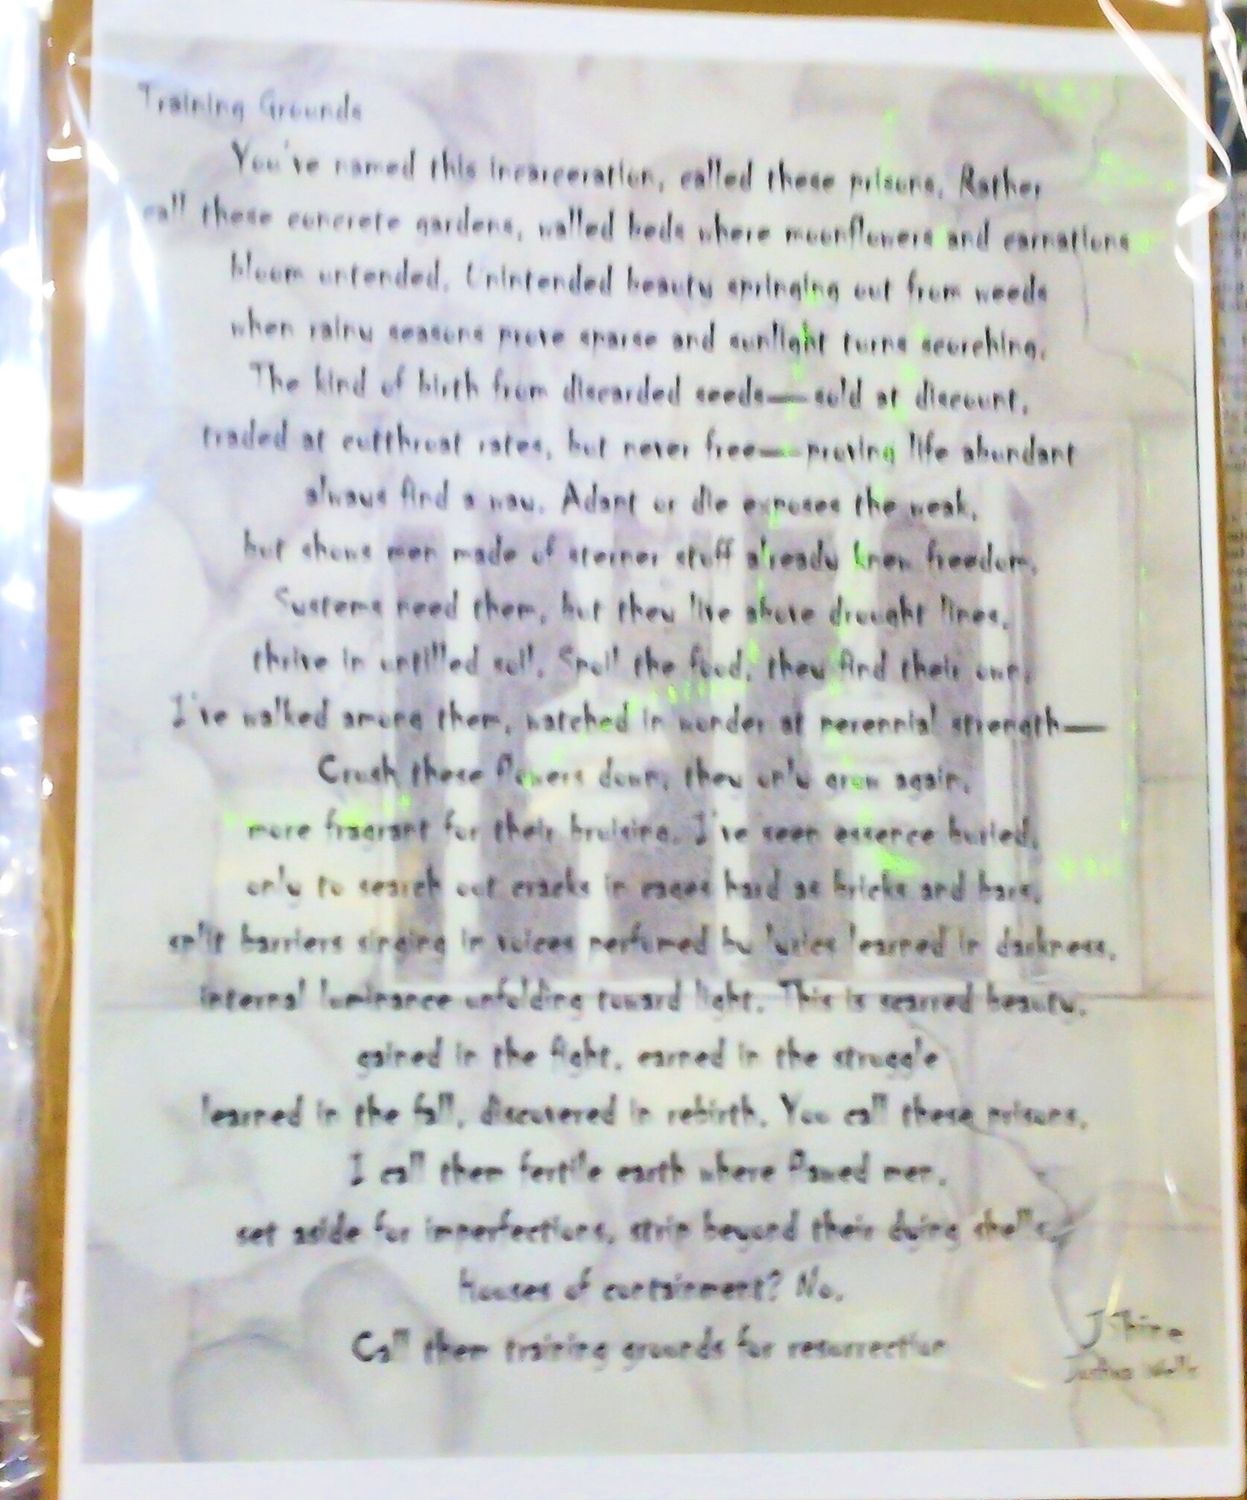 Training Grounds
You've named this incarceration, called these prisons. Rather
call these concrete gardens, walled beds where moonflowers and carnations
bloom untended. Unintended beauty springing out from weeds
when rainy seasons prove sparse and sunlight turns scorching.
The kind of birth from discarded seeds—sold at discount,
traded at cutthroat rates, but never free—proving life abundant
always find a way. Adapt or die exposes the weak,
but shows men made of sterner stuff already knew freedom.
Systems need them, but they live above drought lines,
thrive in untilled soil. Spoil the food, they find their own.
I've walked among them, watched in wonder at perennial strength—
Crush these flowers down, they only grow again,
more fragrant for their bruising. I've seen essence buried,
only to search out cracks in cages hard as bricks and bars,
split barriers singing in voices perfumed by lyrics learned in darkness,
internal luminance unfolding toward light. This is scarred beauty,
gained in the fight, earned in the struggle
learned in the fall, discovered in rebirth. You call these prisons,
I call them fertile earth where flawed men,
set aside for imperfections, strip beyond their dying shells.
Houses of containment? No.
Call them training grounds for resurrection
Justus